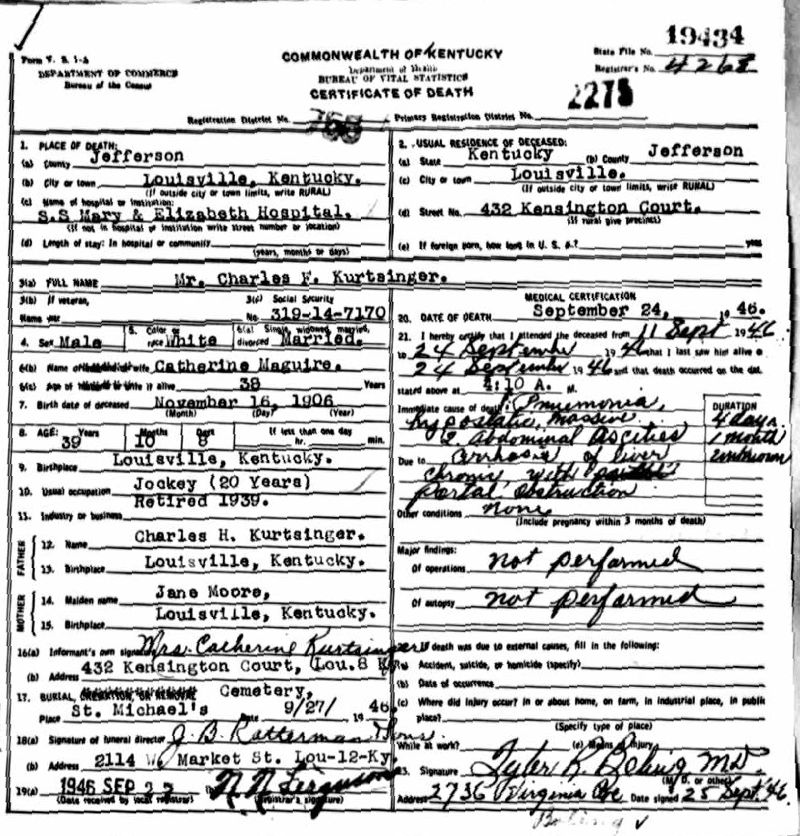 19434
Form V. S. 1-A
DEPARTMENT OF COMMERCE
Bureau of the Census
COMMONWEALTH OF KENTUCKY
Department of Health
BUREAU OF VITAL STATISTICS
CERTIFICATE OF DEATH
State File No.
Registrar's No. 4268
2275
Registration District No. 758 Primary Registration District No.
1. PLACE OF DEATH:
(a) County Jefferson
(b) City or town Louisville, Kentucky.
(If outside city or town limits, write RURAL)
(c) Name of hospital or institution:
S.S Mary & Elizabeth Hospital.
(If not in hospital or institution write street number or location)
(d) Length of stay: In hospital or community
(years, months or days)
2. USUAL RESIDENCE OF DECEASED:
(a) State Kentucky (b) County Jefferson
(c) City or town Louisville.
(If outside city or town limits, write RURAL)
(d) Street No. 432 Kensington Court.
(If rural give precinct)
(e) If foreign born, how long in U. S. A.? years
3(a) FULL NAME Mr. Charles F. Kurtsinger.
3(b) If veteran,
Name war
3(c) Social Security
No. 319-14-7170
4. Sex Male
5. Color or
race White
6(a) Single, widowed, married,
divorced Married.
6(b) Name of husband or wife Catherine Maguire.
6(c) Age of husband or wife if alive 38 Years
7. Birth date of deceased November 16, 1906
(Month) (Day) (Year)
8. AGE: Years Months Days If less than one day
39 10 8 hr. min.
9. Birthplace Louisville, Kentucky.
10. Usual occupation Jockey (20 Years)
Retired 1939.
11. Industry or business
FATHER
12. Name Charles H. Kurtsinger.
13. Birthplace Louisville, Kentucky.
MOTHER
14. Maiden name Jane Moore,
15. Birthplace Louisville, Kentucky.
16(a) Informant's own signature Mrs. Catherine Kurtsinger
(b) Address 432 Kensington Court, Lou.8 Ky.
17. BURIAL, CREMATION, OR REMOVAL Cemetery,
Place St. Michael's Date 9/27/ 1946
18(a) Signature of funeral director J. B. Ratterman Sons.
(b) Address 2114 W. Market St. Lou-12-Ky.
19(a) 1946 SEP
(Date received by local registrar)
N N Ferguson
(Registrar's signature)
MEDICAL CERTIFICATION
20. DATE OF DEATH September 24, 1946.
21. I hereby certify that I attended the deceased from 11 Sept 1946
to 24 September 1946 that I last saw him alive o
24 September 1946 and that death occurred on the dat
stated above at 4:10 A. M.
DURATION
Immediate cause of death 1. Pneumonia,
hypostatic, massive 4 days
2. Abdominal Ascities 1 month
Due to Cirrhosis of liver unknown
chronic, with
portal obstruction
Other conditions None
(Include pregnancy within 3 months of death)
Major findings:
Of operations not performed
Of autopsy not performed
If death was due to external causes, fill in the following:
(a) Accident, suicide, or homicide (specify)
(b) Date of occurrence
(c) Where did injury occur? in or about home, on farm, in industrial place, in public
place?
(Specify type of place)
While at work? (e) Means of injury
23. Signature Tyler R. Boling MD.
(M. D. or other)
Address 2736 Virginia Ave Date signed 25 Sept 46
Boling ✓